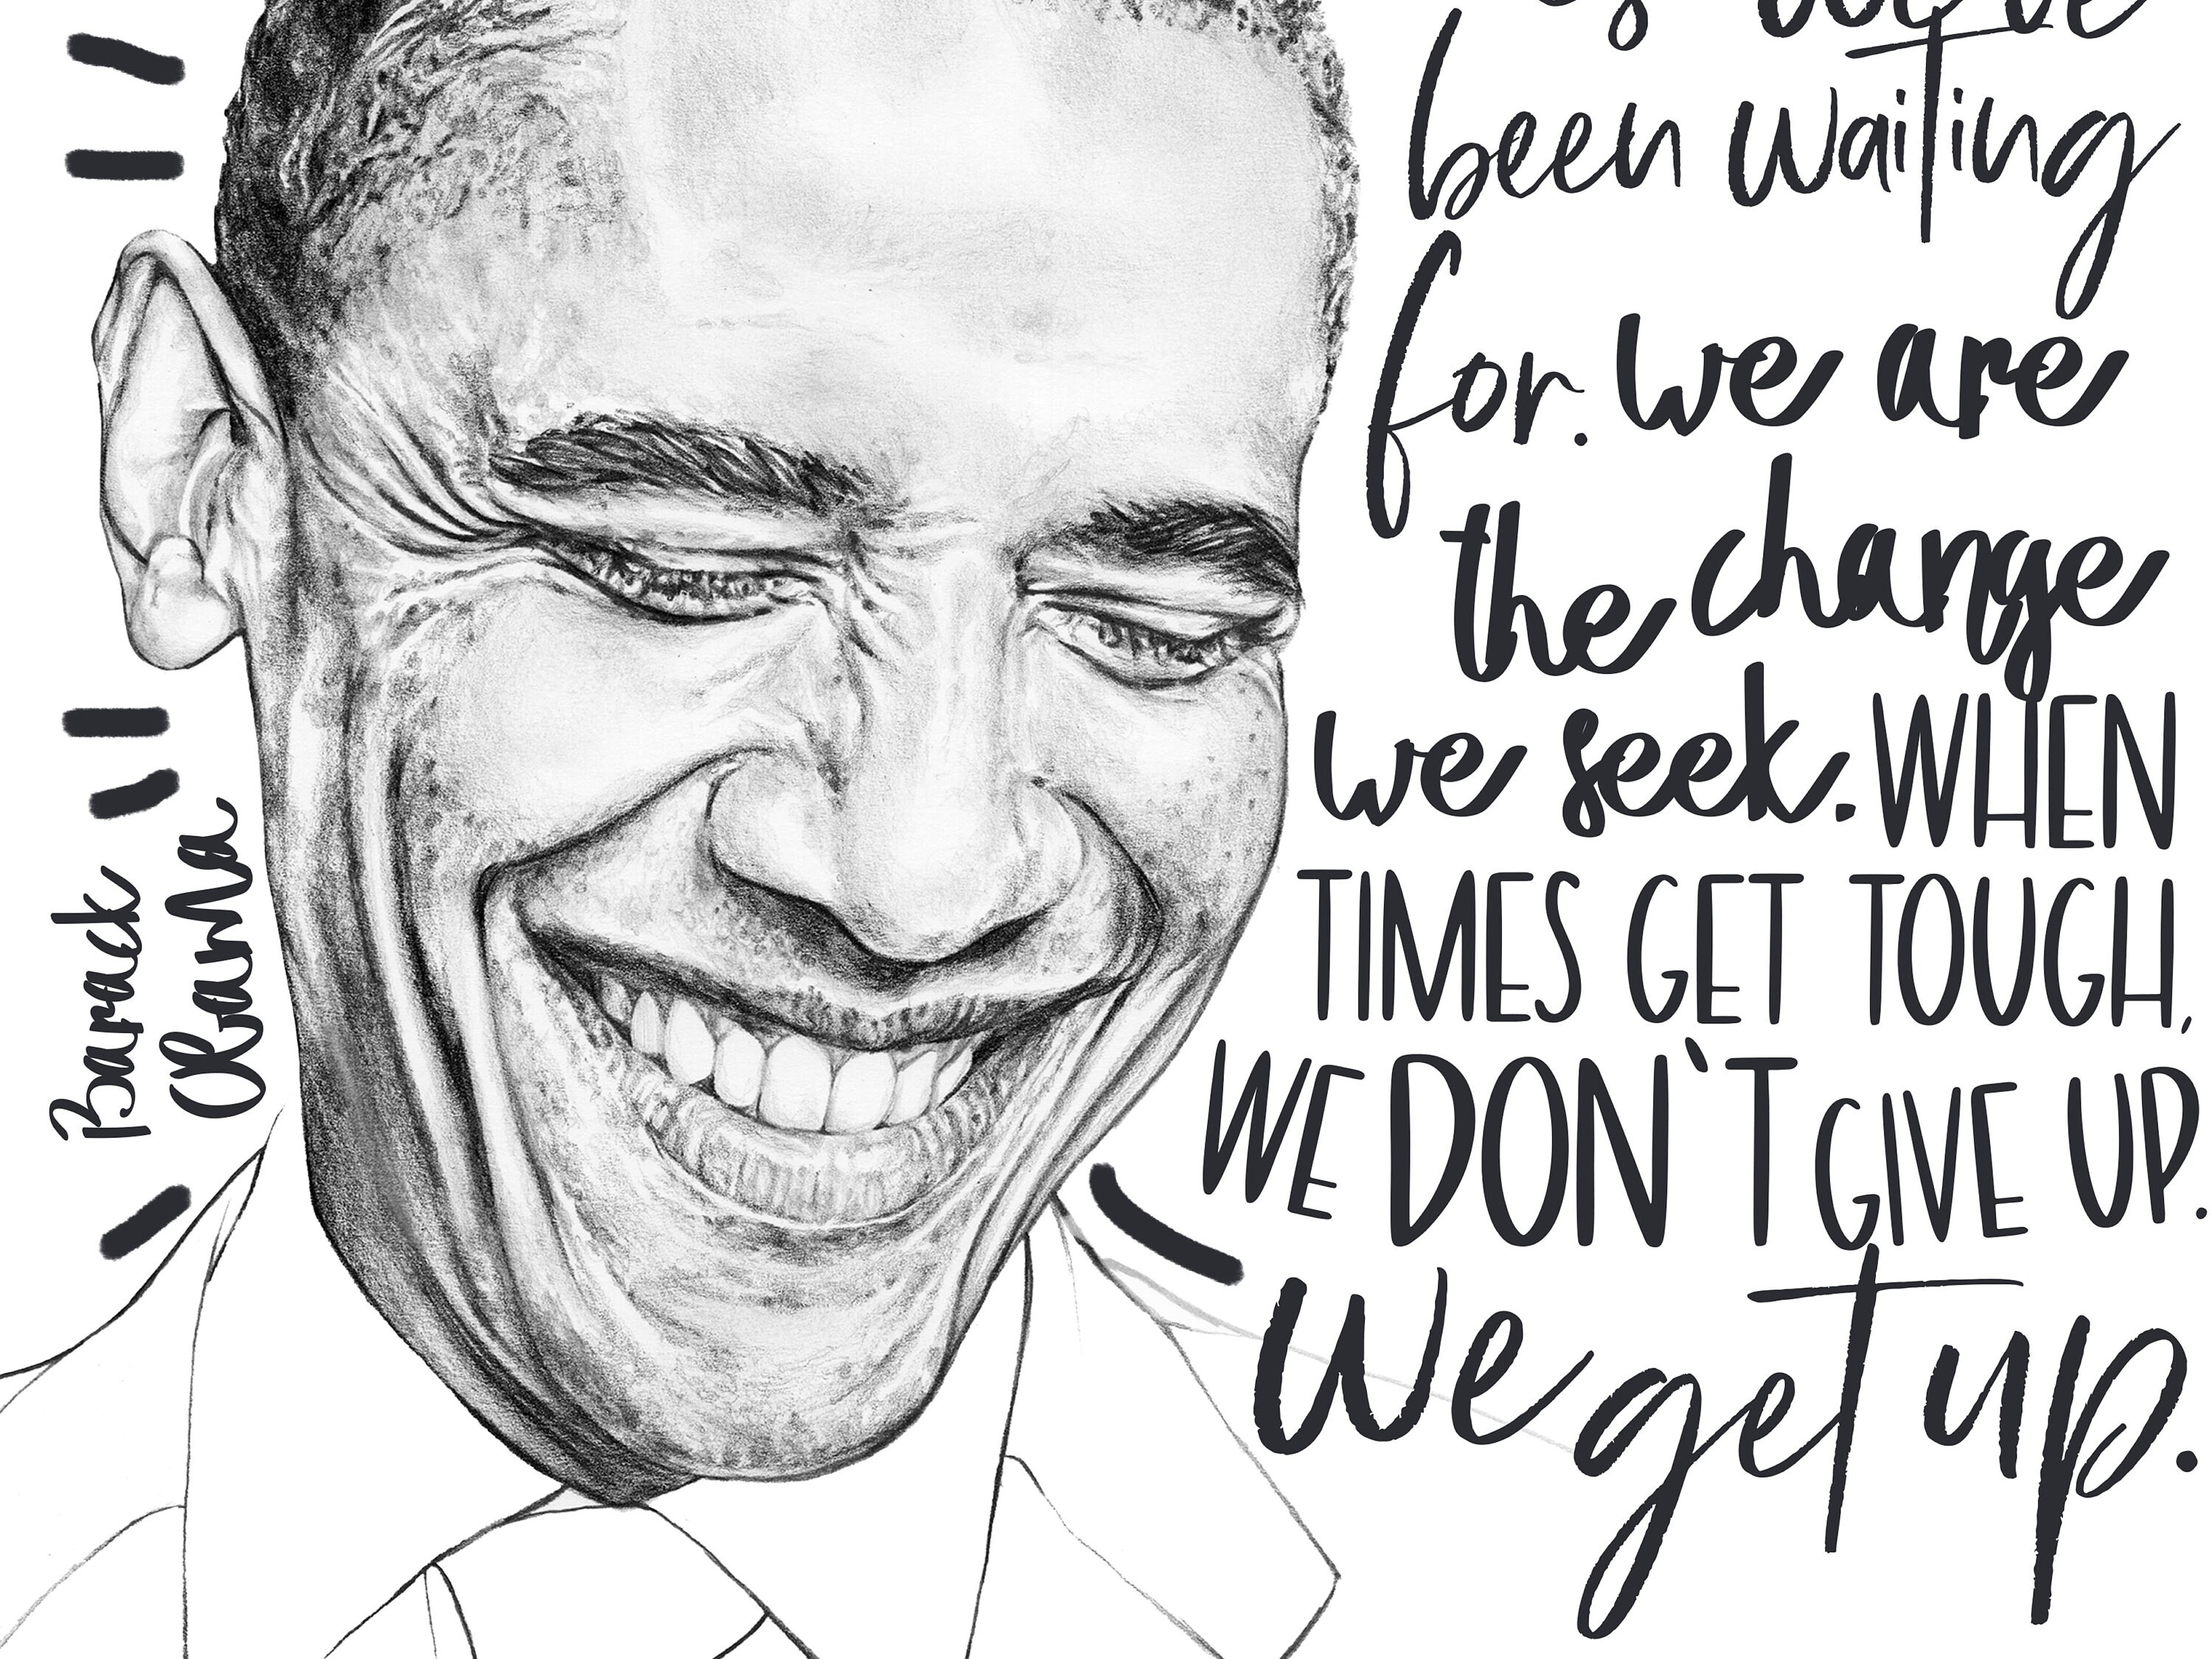 been waiting
for. we are
the change
we seek. WHEN
TIMES GET TOUGH,
WE DON'T GIVE UP.
We get up.
Barack
Obama